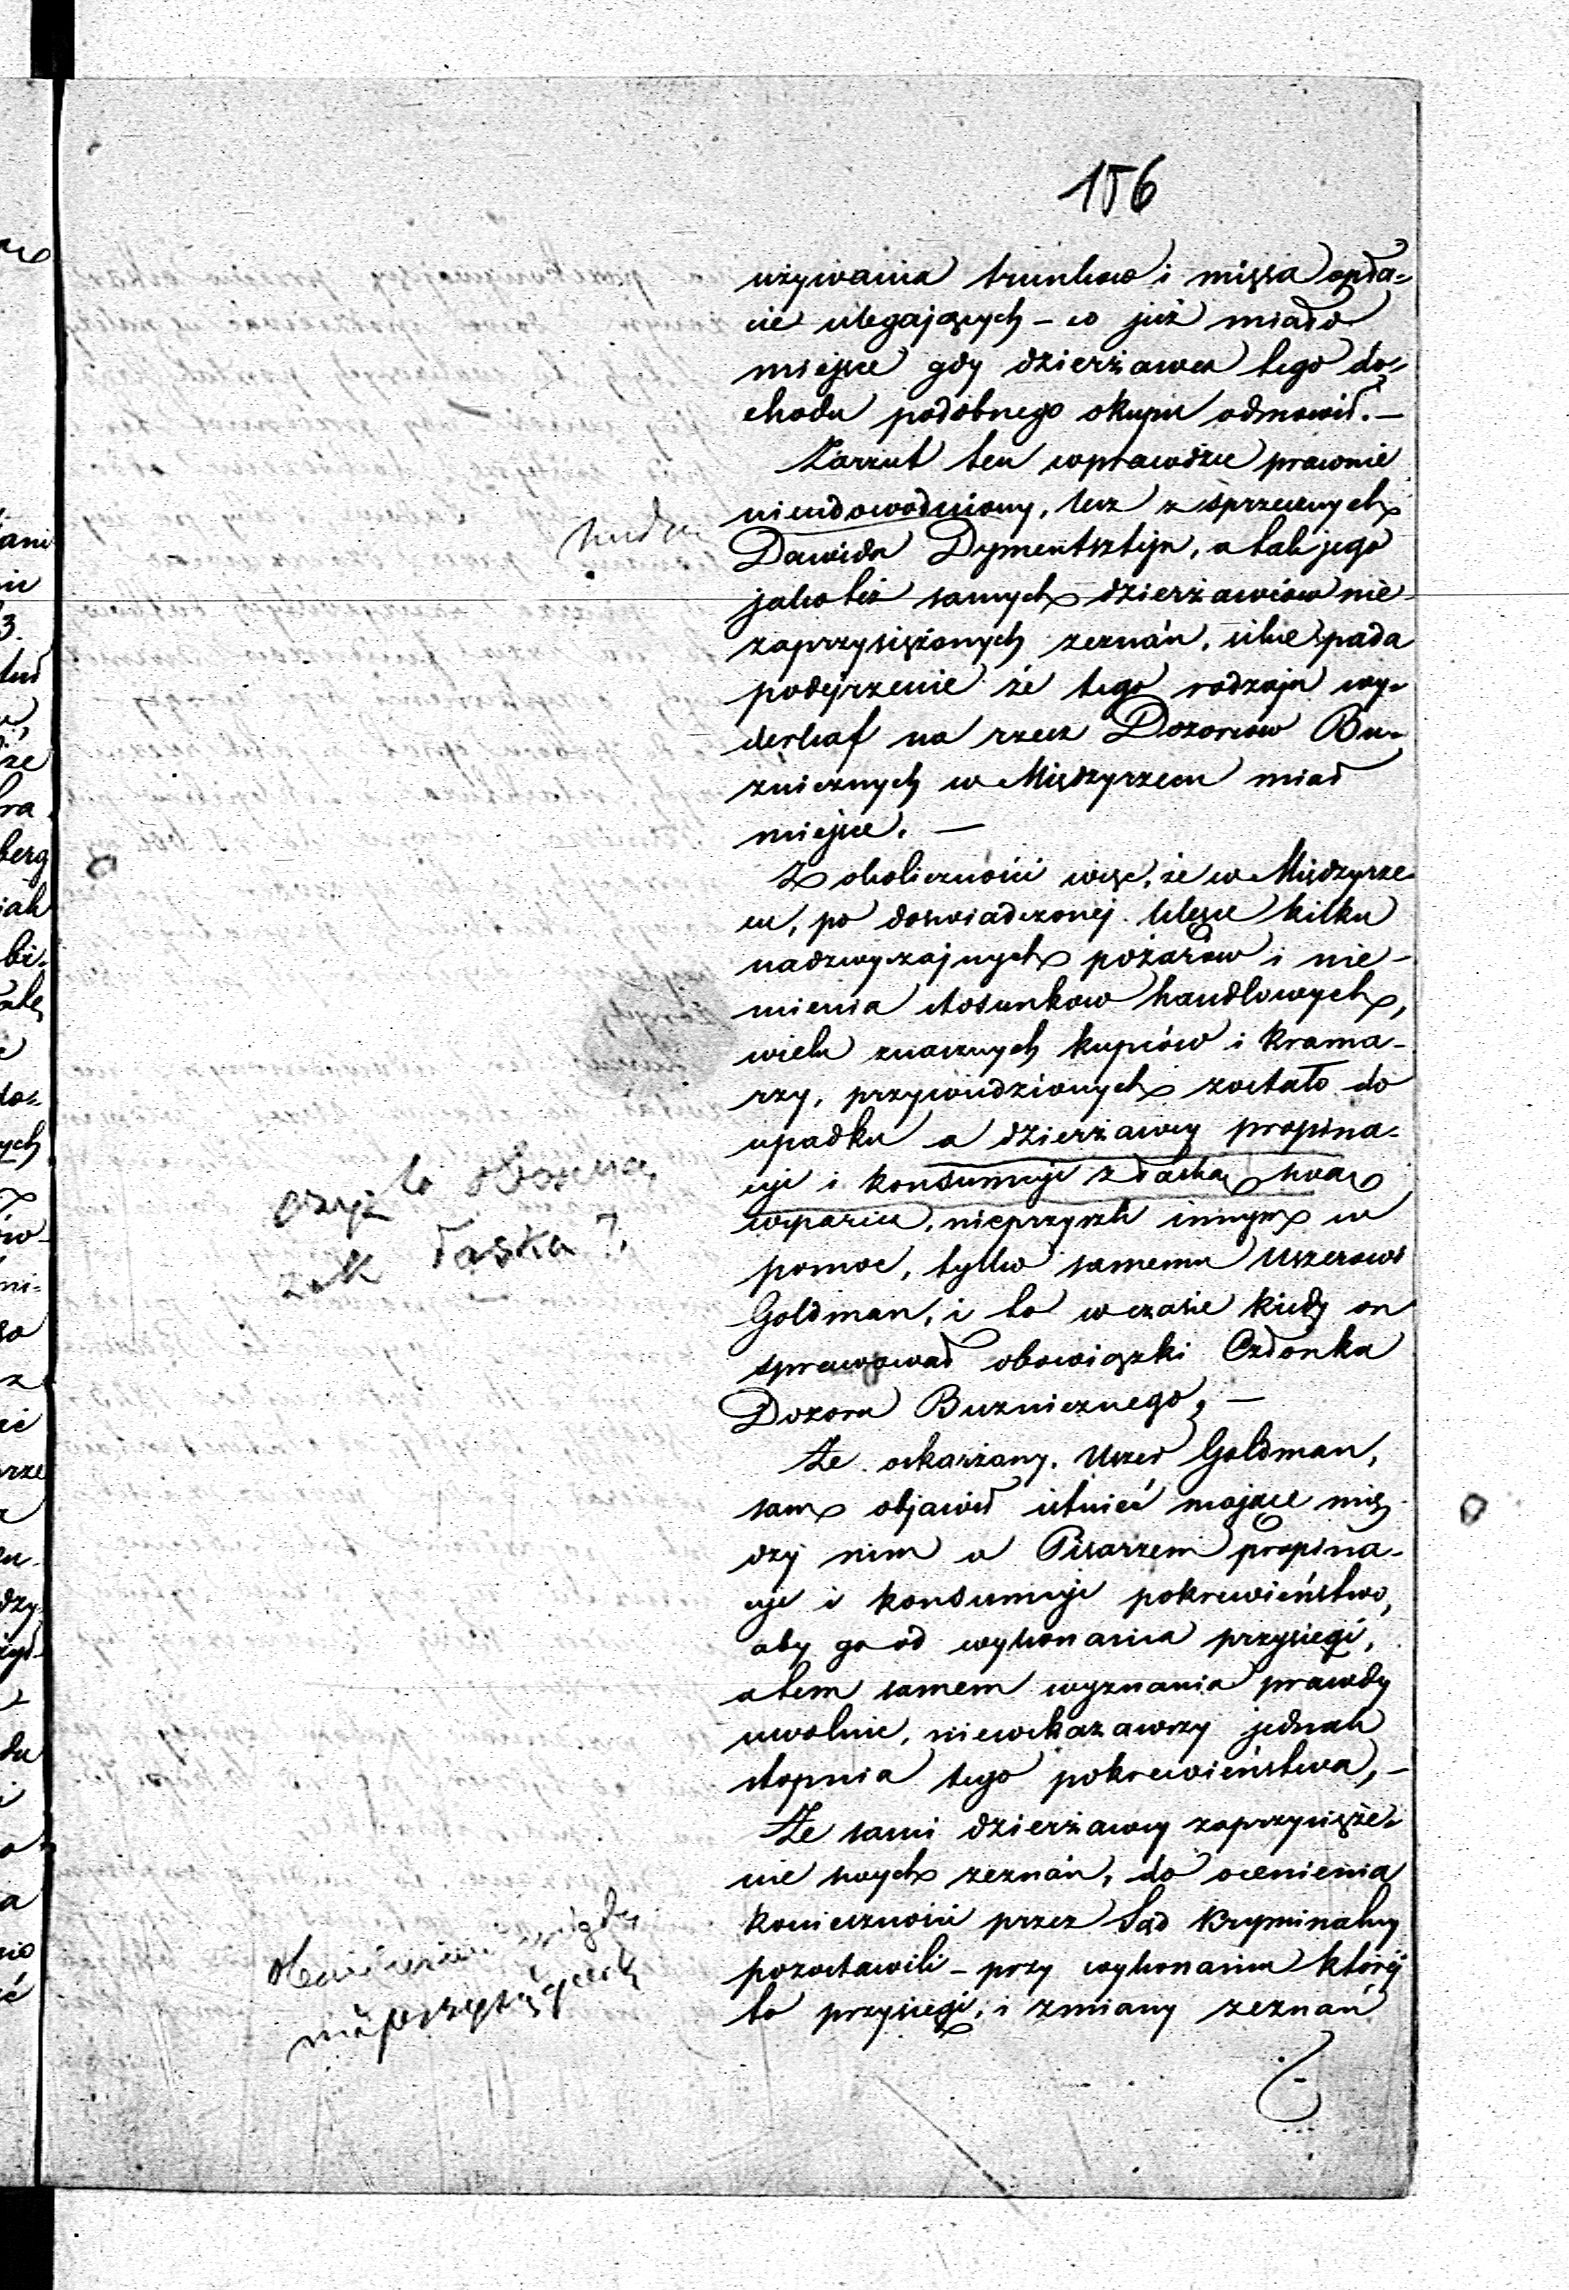 156
używania trunków i mięsa opła-
cie ulegających – co już miało
miejsce gdy dzierżawca tego do-
chodu podobnego okupu odmówił. –
Zarzut ten wprawdzie prawnie
nieudowodniony, lecz z sprzecznych
Dawida Dymentsztejn, a tak jego
jako też samych dzierżawców nie
zaprzysiężonych zeznań, silne pada
podejrzenie że tego rodzaju wy-
derkaf na rzecz Dozorców Bu-
źnicznych w Międzyrzecu miał
miejsce. –
Z okoliczności więc, że w Międzyrze-
cu, po doświadczonej klęsce kilku
nadzwyczajnych pożarów i nie-
mienia stosunków handlowych,
wielu znacznych kupców i krama-
rzy, przywiedzionych zostało do
upadku a dzierżawcy propina-
cji i konsumcji z łaską swą
wparcia, nieprzyszli innym w
pomoc, tylko samemu Uszerowi
Goldman, i to w czasie kiedy on
sprawował obowiązki Członka
Dozoru Buźnicznego, –
Że oskarżany, Uszer Goldman,
sam objawił istnieć mające mię-
dzy nim a Pisarzem propina-
cji i konsumcji pokrewieństwo,
aby go od wykonania przysięgi,
a tem samem wyznania prawdy
uwolnić, niewskazawszy jednak
stopnia tego pokrewieństwa, –
Że sami dzierżawcy zaprzysięże-
nie swych zeznań, do ocenienia
konieczności przez Sąd Kryminalny
pozostawili – przy wykonaniu której
to przysięgi, i zmiany zeznań
czyż to
łaska?
nieprzysięgali